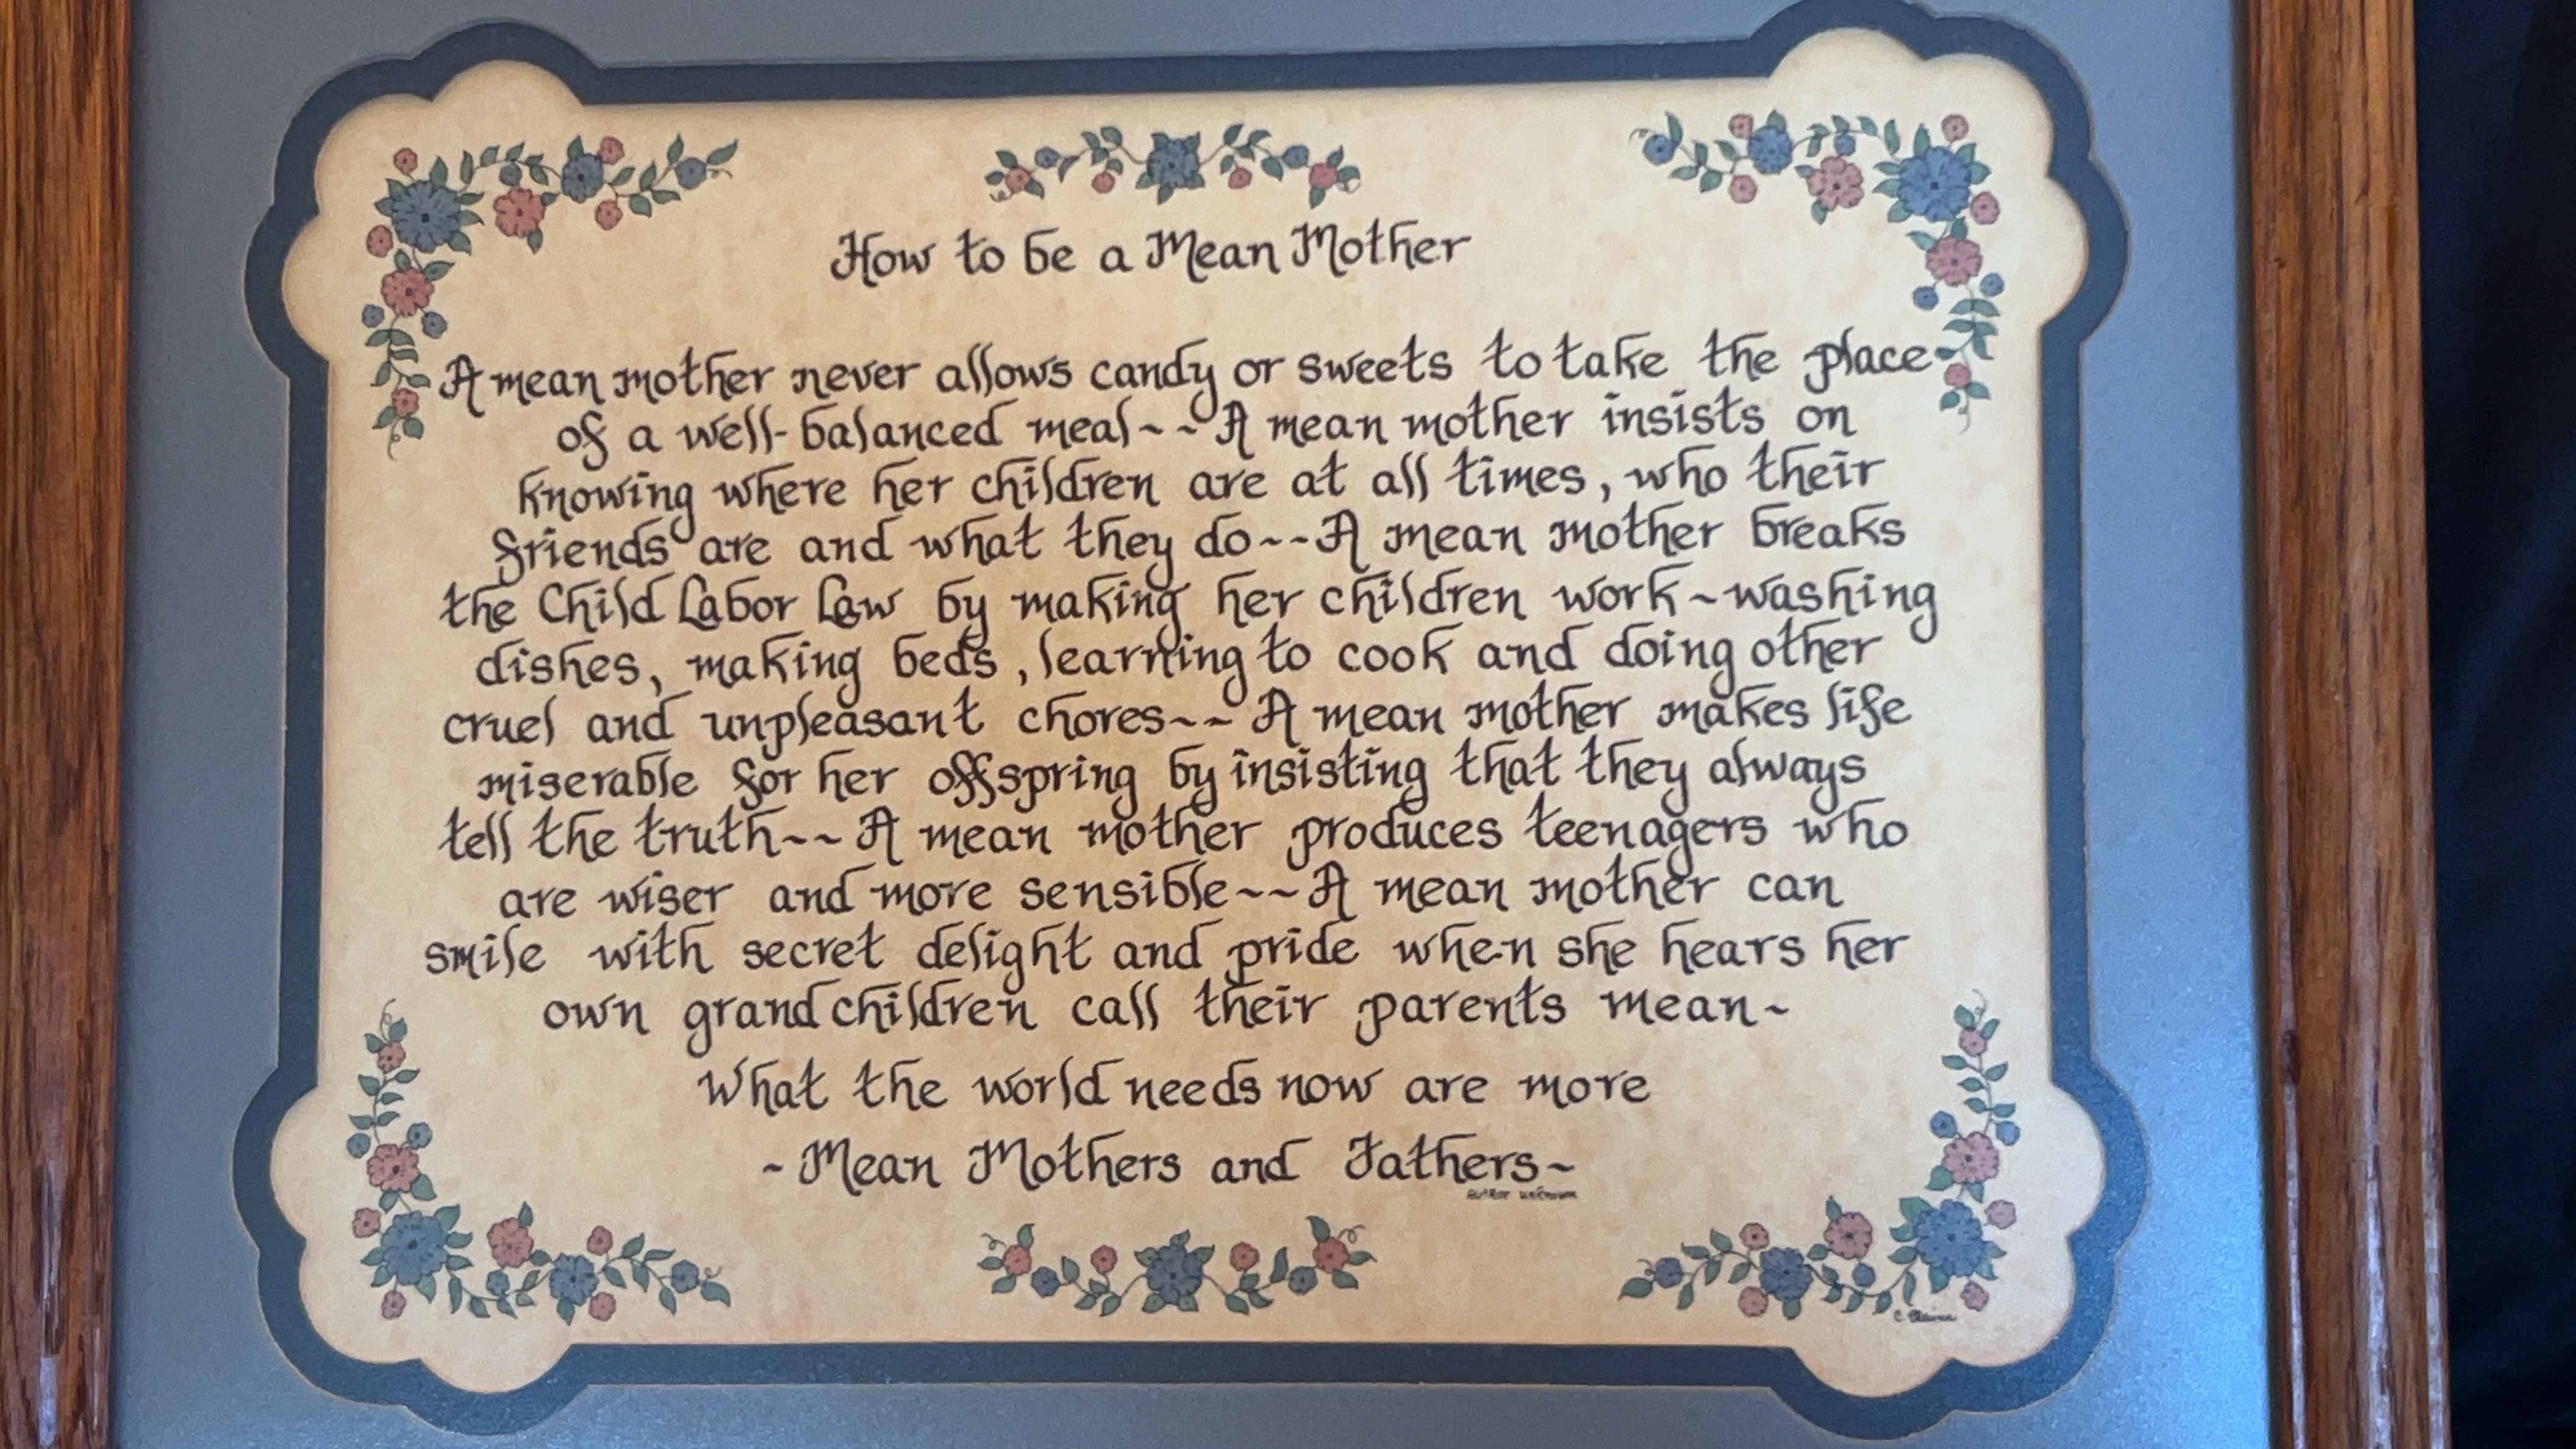 How to be a Mean Mother
A mean mother never allows candy or sweets to take the place
of a well-balanced meal~~A mean mother insists on
knowing where her children are at all times, who their
friends are and what they do~~A mean mother breaks
the Child Labor Law by making her children work~washing
dishes, making beds, learning to cook and doing other
cruel and unpleasant chores~~A mean mother makes life
miserable for her offspring by insisting that they always
tell the truth~~A mean mother produces teenagers who
are wiser and more sensible~~A mean mother can
smile with secret delight and pride when she hears her
own grandchildren call their parents mean~
What the world needs now are more
~Mean Mothers and Fathers~
author unknown
C.